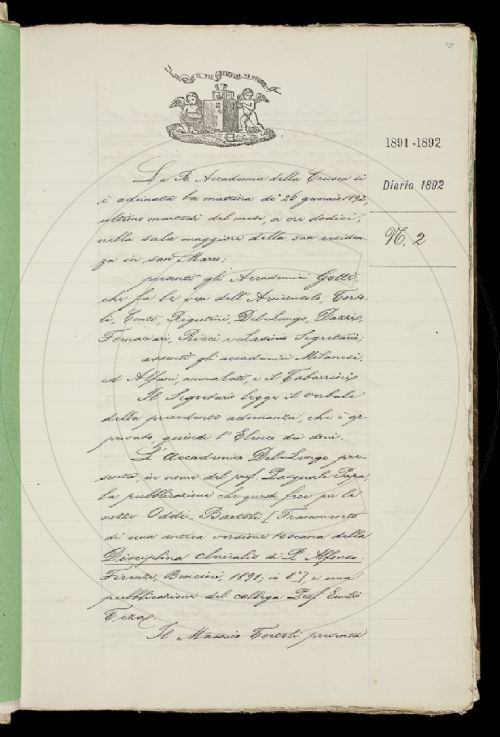 1891-1892
Diario 1892
N. 2
La R. Accademia della Crusca si
è adunata la mattina di 26 gennaio 1892,
ultimo martedì del mese, a ore dodici,
nella sala maggiore della sua residen-
za in San Marco;
presenti gli Accademici Gotti,
che fa le veci dell'Arciconsolo, Torto-
li, Conti, Rigutini, Del Lungo, Dazzi,
Fornaciari, Ricci e Lasinio Segretario;
assenti gli accademici Milanesi
ed Alfani, ammalati, e il Tabarrini.
Il Segretario legge il verbale
della precedente adunanza, che è ap-
provato, quindi l'Elenco dei doni.
L'Accademico Del-Lungo pre-
senta, in nome del prof. Pasquale Papa,
la pubblicazione che questi fece per le
nozze Oddi-Bartoli [Frammento
di una antica versione toscana della
Disciplina Clericalis di P. Alfonso.
Firenze, 1891; in 8°], e una
pubblicazione del collega Prof. Emilio
Teza.
Il Massaio Tortoli presenta